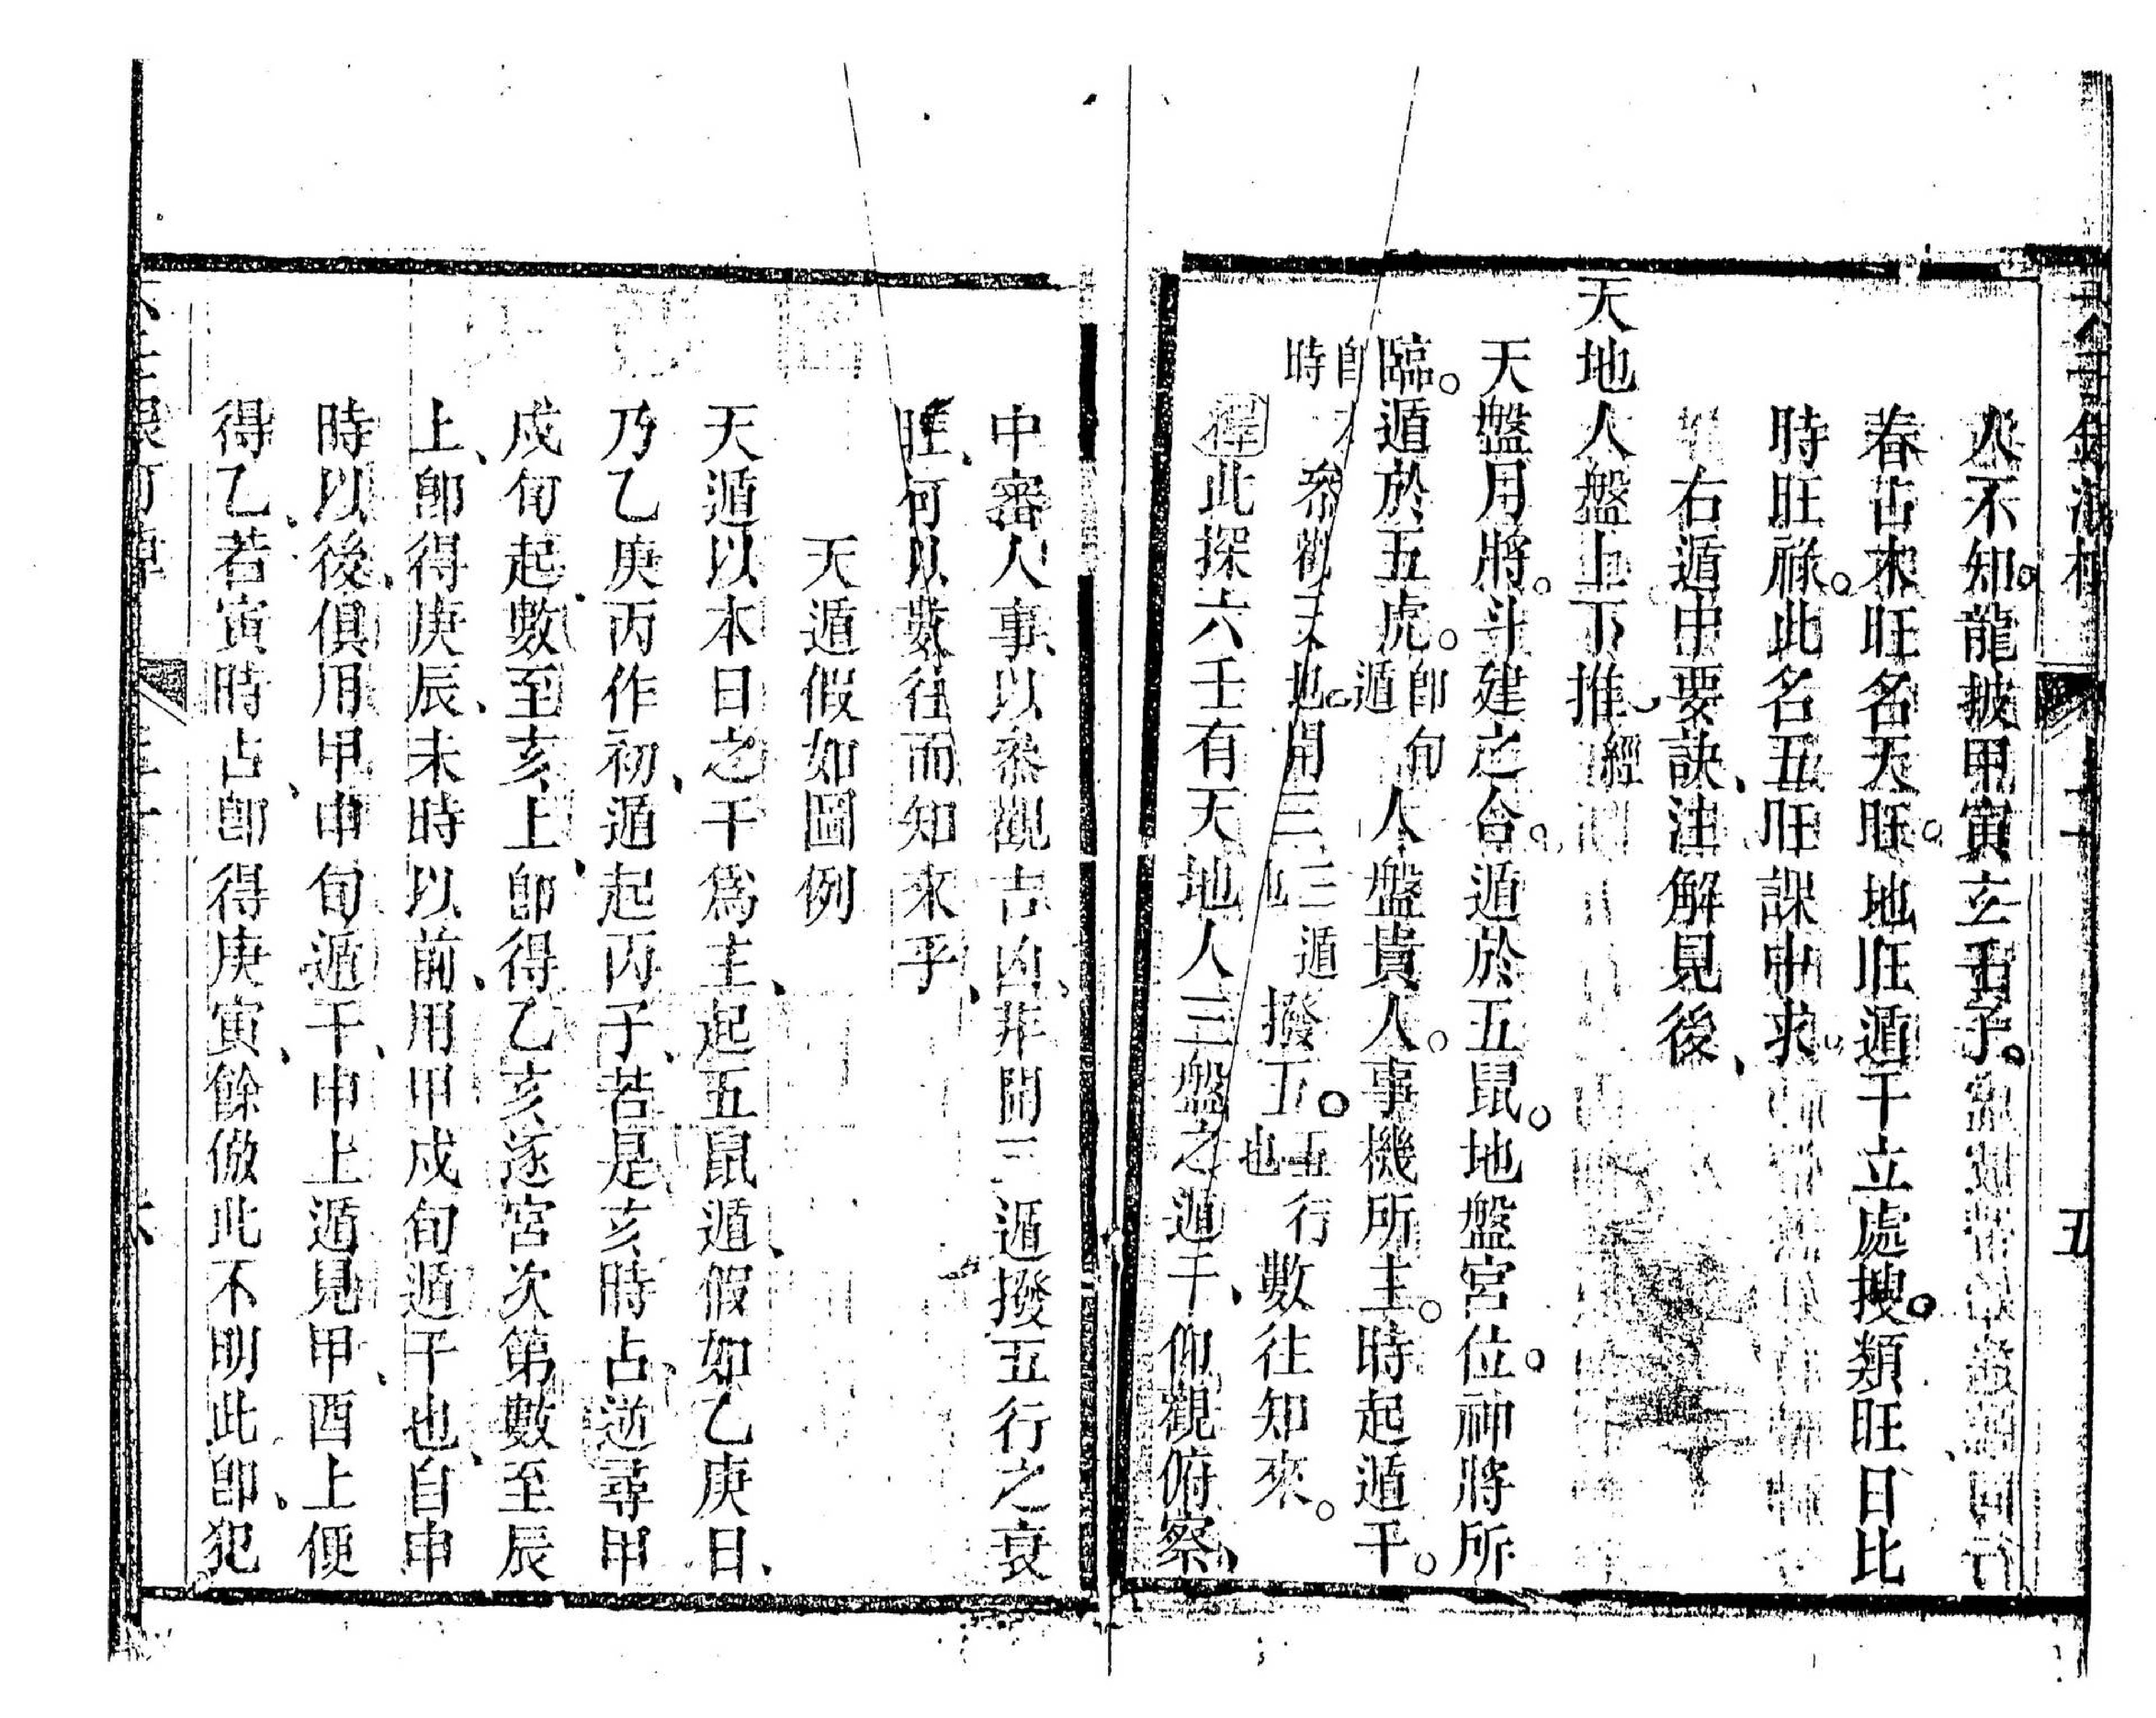 人不知。龍披甲寅玄壬子。
春占木旺名天旺。地旺遁干立處搜。類旺日比
時旺祿。此名五旺課中求。
右遁中要訣、注解見後、
天地人盤上下推經
天盤用將。斗建之合。遁於五鼠。地盤宮位。神將所
臨。遁於五虎。即旬遁人盤貴人。事機所主。時起遁干。
即本時參觀天地。開三三遁也撥五。五行也數往知來。
此探六壬有天地人三盤之遁干、仰觀俯察、
中審人事、以參觀吉凶、非開三遁撥五行之衰
旺、何以數往而知來乎、
天遁假如圖例
天遁以本日之干爲主、起五鼠遁、假如乙庚日、
乃乙庚丙作初、遁起丙子、若是亥時占、逆尋甲
戌旬起數、至亥上、即得乙亥、逐宮次第數至辰
上、即得庚辰、未時以前、用甲戌旬遁干也、自申
時以後、俱用甲申旬遁干、申上遁見甲、酉上便
得乙、若寅時占、即得庚寅、餘倣此、不明此、即犯